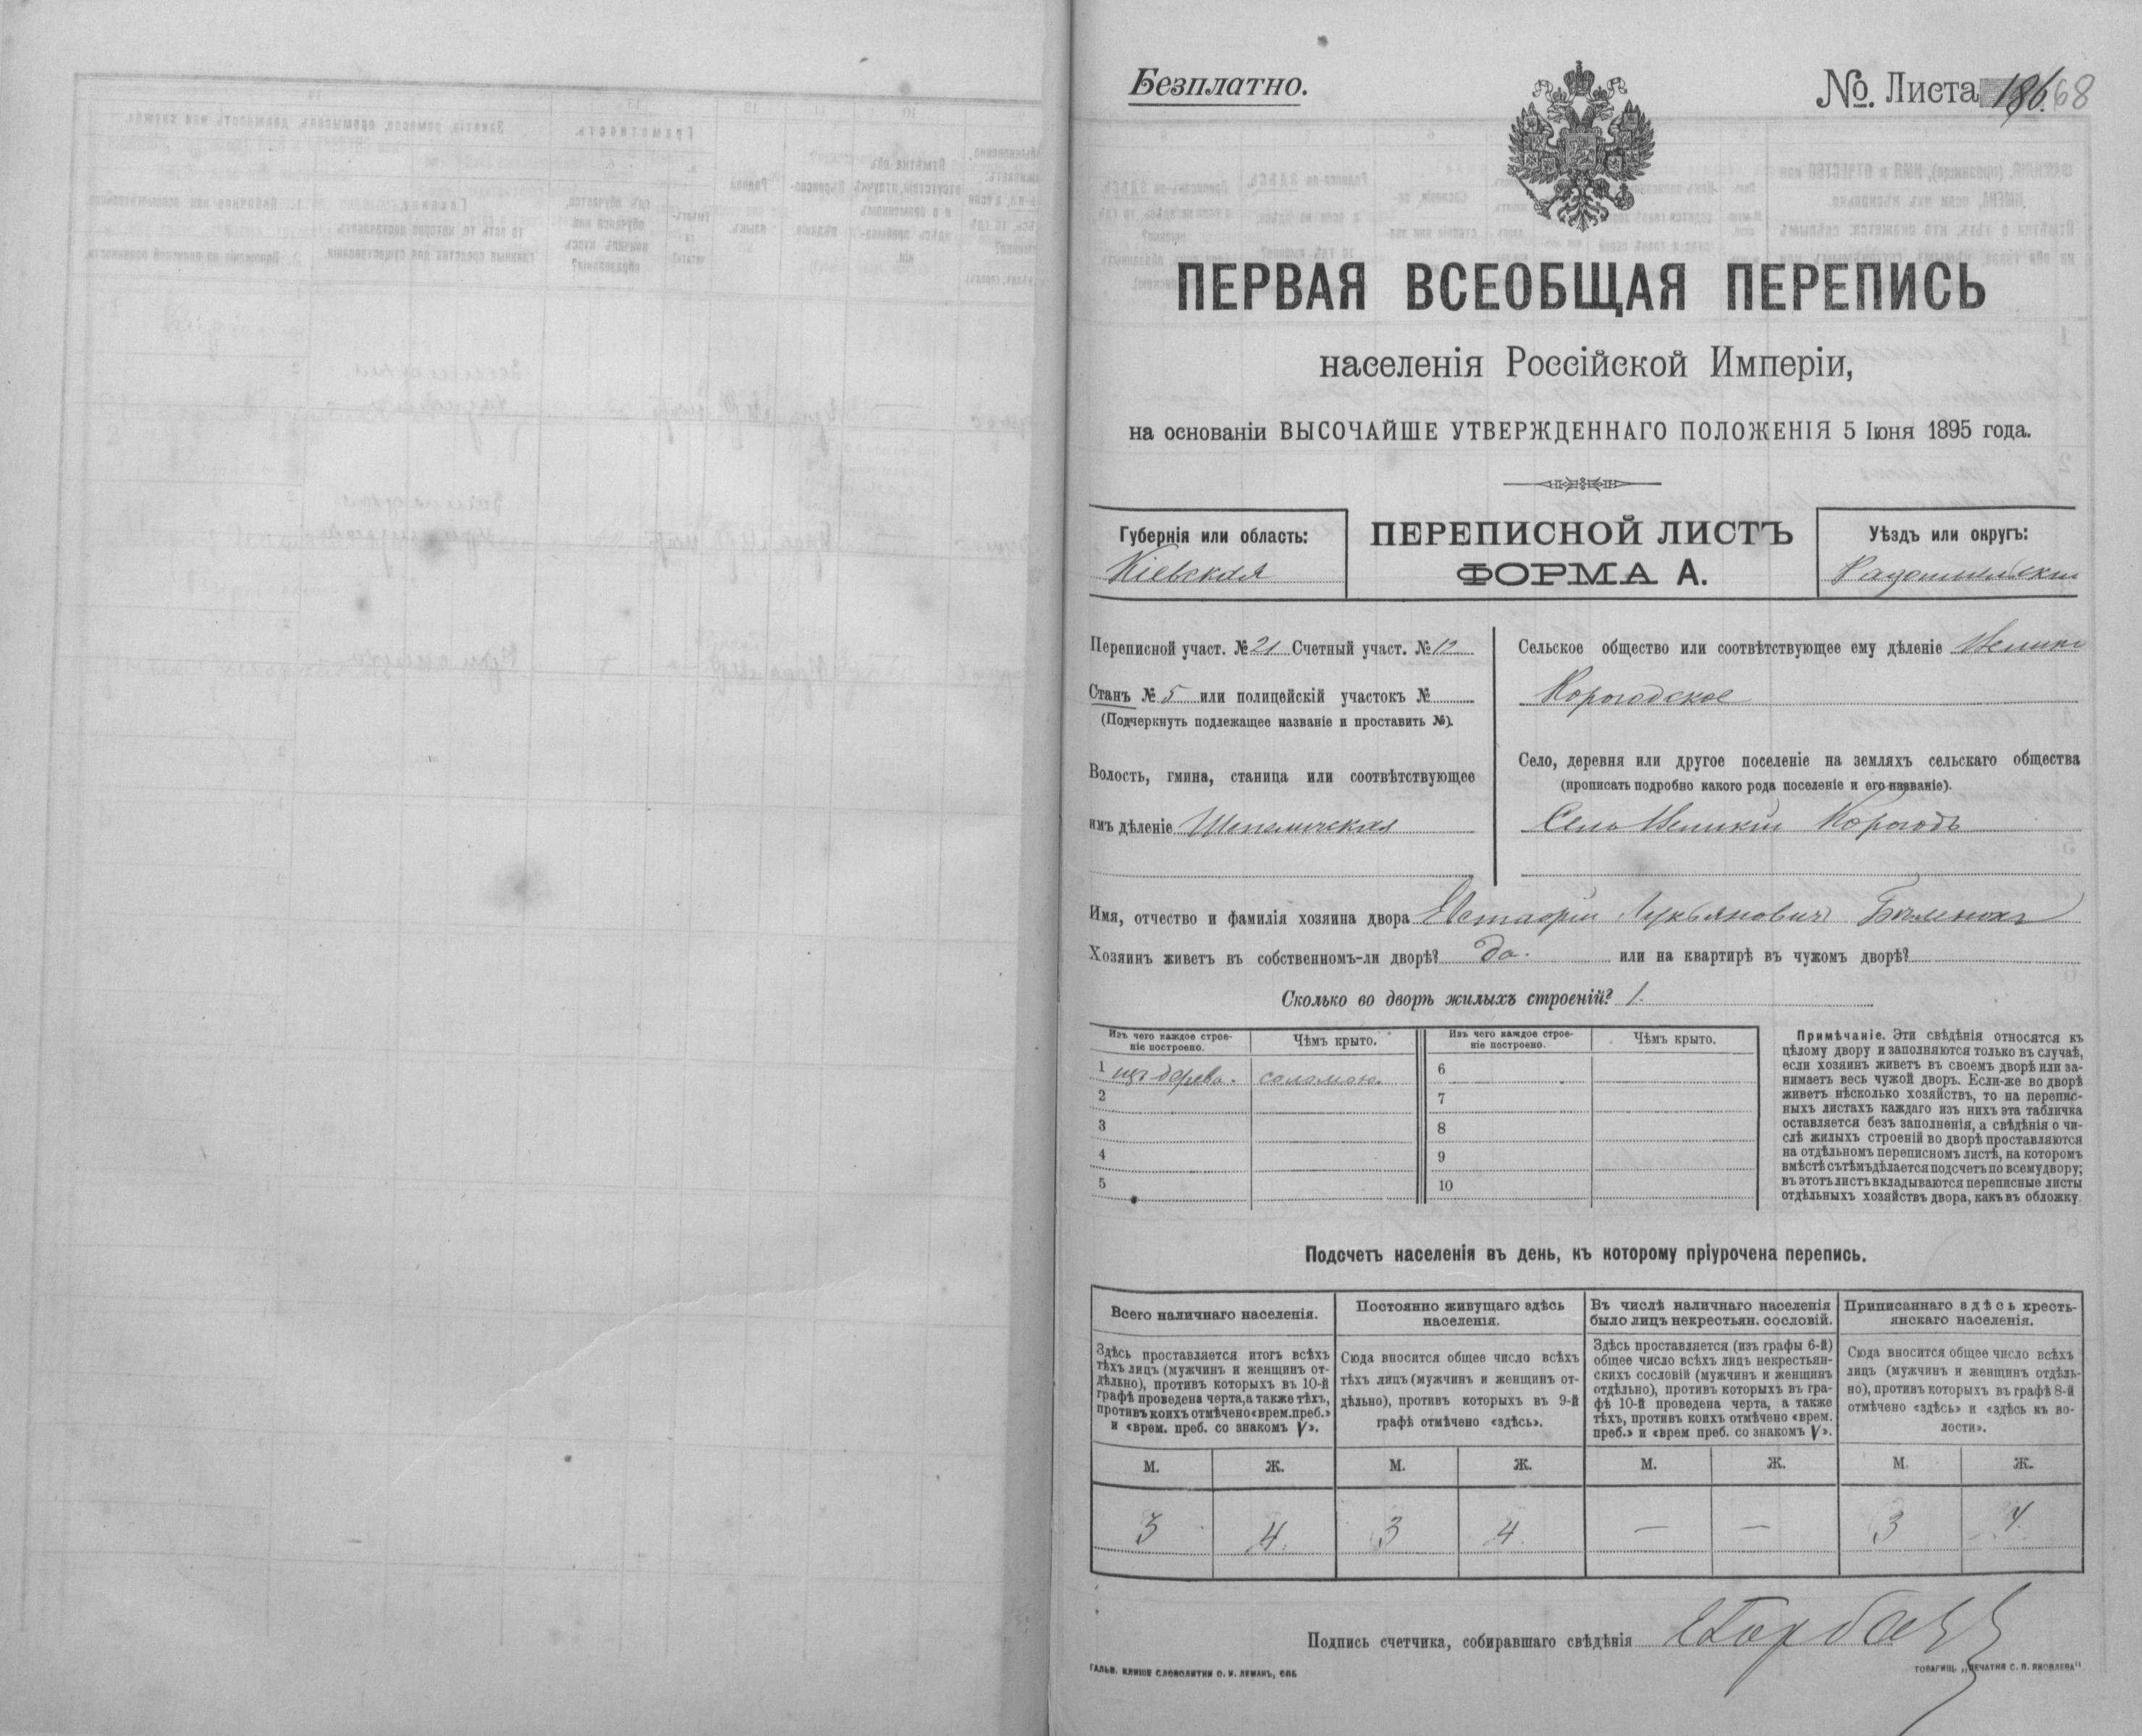 Безплатно.
№. Листа 186. 68
ПЕРВАЯ ВСЕОБЩАЯ ПЕРЕПИСЬ
населенія Россійской Имперіи,
на основаніи ВЫСОЧАЙШЕ УТВЕРЖДЕННАГО ПОЛОЖЕНІЯ 5 Іюня 1895 года.
Губернія или область:
Кіевская
ПЕРЕПИСНОЙ ЛИСТЪ
ФОРМА А.
Уѣздъ или округъ:
Радомысльскій
Переписной участ. № 21 Счетный участ. № 12
Станъ № 5 или полицейскій участокъ №
(Подчеркнуть подлежащее названіе и проставить №).
Волость, гмина, станица или соотвѣтствующее
имъ дѣленіе Шепеличская
Сельское общество или соотвѣтствующее ему дѣленіе Велико
Корогодское
Село, деревня или другое поселеніе на земляхъ сельскаго общества
(прописать подробно какого рода поселеніе и его названіе).
Село Великій Корогодъ
Имя, отчество и фамилія хозяина двора Евстафій Лукьяновичъ
Хозяинъ живетъ въ собственномъ-ли дворѣ? да. или на квартирѣ въ чужомъ дворѣ?
Сколько во дворѣ жилыхъ строеній? 1.
Изъ чего каждое строе-
ніе построено.
Чѣмъ крыто.
Изъ чего каждое строе-
ніе построено.
Чѣмъ крыто.
1 изъ дерева. соломою. 6
2 7
3 8
4 9
5 10
Примѣчаніе. Эти свѣдѣнія относятся къ
цѣлому двору и заполняются только въ случаѣ,
если хозяинъ живетъ въ своемъ дворѣ или за-
нимаетъ весь чужой дворъ. Если-же во дворѣ
живетъ нѣсколько хозяйствъ, то на перепис-
ныхъ листахъ каждаго изъ нихъ эта табличка
оставляется безъ заполненія, а свѣдѣнія о чи-
слѣ жилыхъ строеній во дворѣ проставляются
на отдѣльномъ переписномъ листѣ, на которомъ
вмѣстѣ сътѣмъ дѣлается подсчетъ по всему двору;
въ этотъ листъ вкладываются переписные листы
отдѣльныхъ хозяйствъ двора, какъ въ обложку.
Подсчетъ населенія въ день, къ которому пріурочена перепись.
Всего наличнаго населенія.
Здѣсь проставляется итогъ всѣхъ
тѣхъ лицъ (мужчинъ и женщинъ от-
дѣльно), противъ которыхъ въ 10-й
графѣ проведена черта, а также тѣхъ,
противъ коихъ отмѣчено «врем. преб.»
и «врем. преб. со знакомъ V».
Постоянно живущаго здѣсь
населенія.
Сюда вносится общее число всѣхъ
тѣхъ лицъ (мужчинъ и женщинъ от-
дѣльно), противъ которыхъ въ 9-й
графѣ отмѣчено «здѣсь».
Въ числѣ наличнаго населенія
было лицъ некрестьян. сословій.
Здѣсь проставляется (изъ графы 6-й)
общее число всѣхъ лицъ некрестьян-
скихъ сословій (мужчинъ и женщинъ
отдѣльно), противъ которыхъ въ гра-
фѣ 10-й проведена черта, а также
тѣхъ, противъ коихъ отмѣчено «врем.
преб.» и «врем преб. со знакомъ V».
Приписаннаго здѣсь кресть-
янскаго населенія.
Сюда вносится общее число всѣхъ
лицъ (мужчинъ и женщинъ отдѣль-
но), противъ которыхъ въ графѣ 8-й
отмѣчено «здѣсь» и «здѣсь къ во-
лости».
М. Ж. М. Ж. М. Ж. М. Ж.
3 4. 3 4. — — 3 4.
Подпись счетчика, собиравшаго свѣдѣнія
ГАЛЬВ. КЛИШЕ СЛОВОЛИТНИ О. И. ЛЕМАНЪ, СПБ
ТОВАРИЩ. „ПЕЧАТНЯ С. П. ЯКОВЛЕВА"